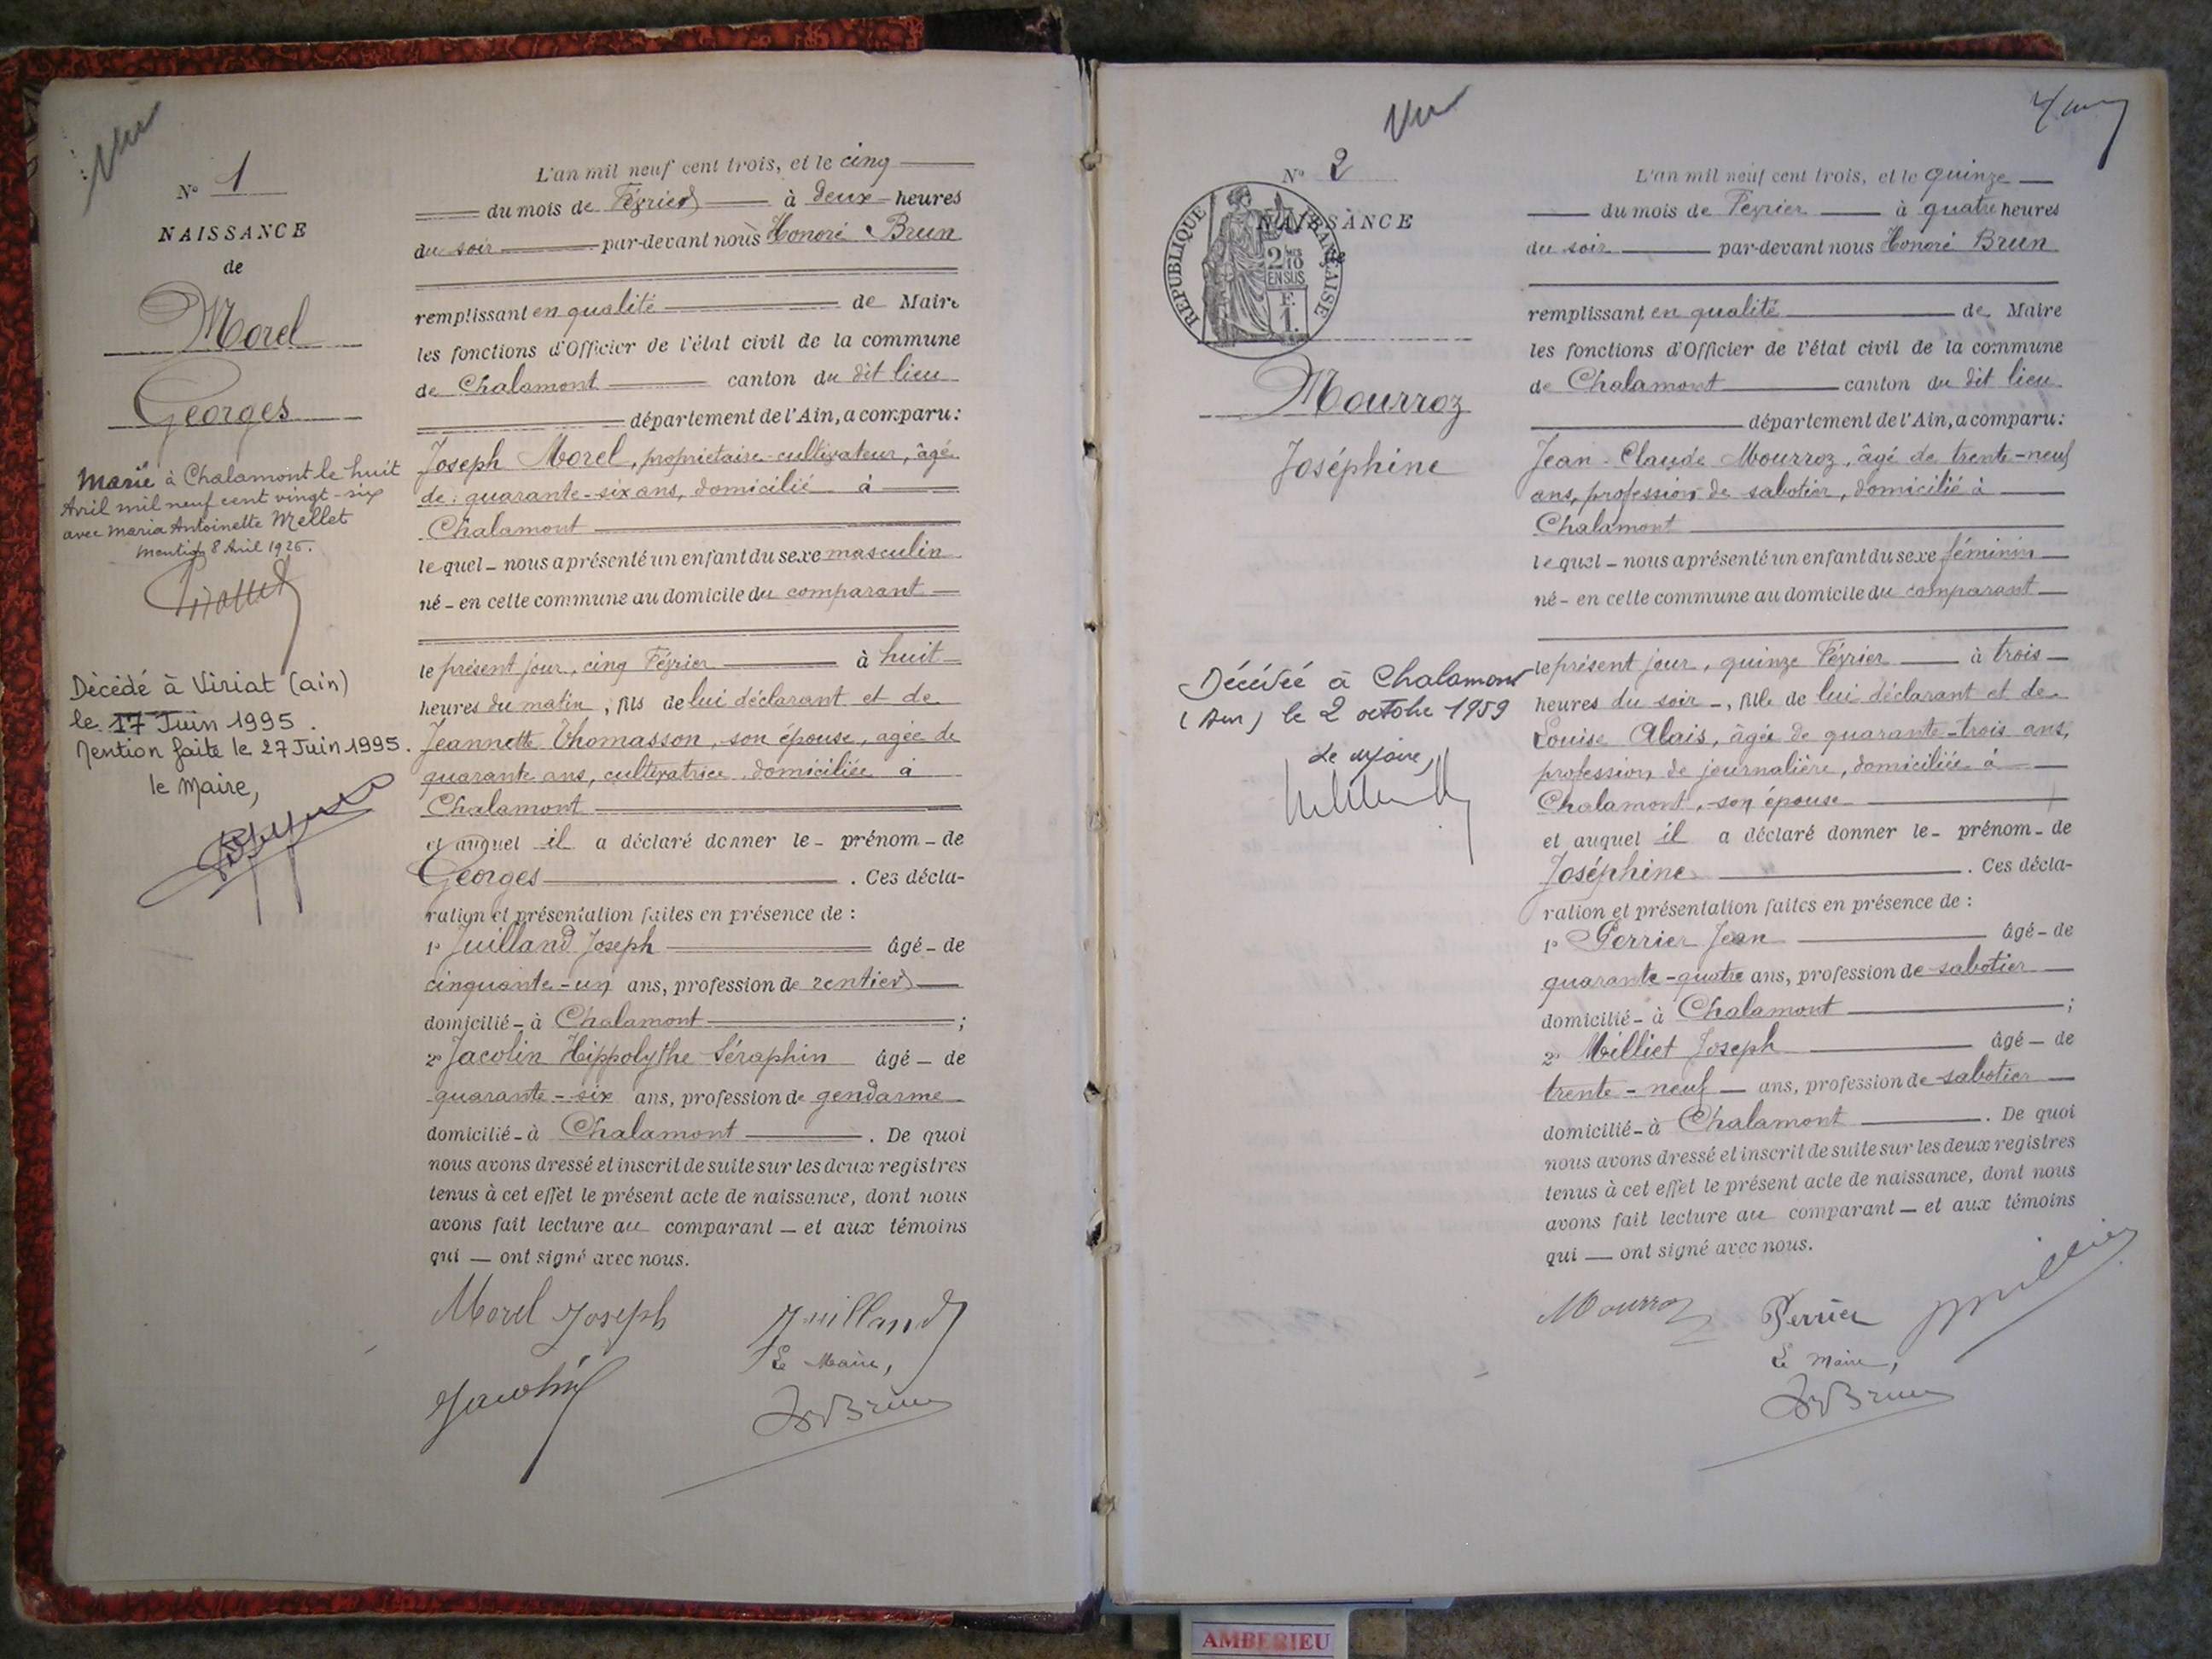 Vu
N° 1
NAISSANCE
de
Morel
Georges
Marié à Chalamont le huit
Avril mil neuf cent vingt-six
avec Maria Antoinette Mellet
Mention 8 Avril 1926.
Décédé à Viriat (ain)
le 17 Juin 1995.
Mention faite le 27 Juin 1995.
le Maire,
L'an mil neuf cent trois, et le cinq
du mois de Février à deux heures
du soir par-devant nous Honoré Brun
remplissant en qualité de Maire
les fonctions d'Officier de l'état civil de la commune
de Chalamont canton du dit lieu
département de l'Ain, a comparu:
Joseph Morel, propriétaire-cultivateur, âgé
de quarante-six ans, domicilié à
Chalamont
lequel nous a présenté un enfant du sexe masculin
né en cette commune au domicile du comparant
le présent jour, cinq Février à huit
heures du matin, fils de lui déclarant et de
Jeannette Thomasson, son épouse, agée de
quarante ans, cultivatrice domiciliée à
Chalamont
et auquel il a déclaré donner le prénom de
Georges. Ces décla-
ration et présentation faites en présence de:
1° Juilland Joseph âgé de
cinquante-un ans, profession de rentier
domicilié à Chalamont;
2° Jacolin Hippolythe Séraphin âgé de
quarante-six ans, profession de gendarme
domicilié à Chalamont. De quoi
nous avons dressé et inscrit de suite sur les deux registres
tenus à cet effet le présent acte de naissance, dont nous
avons fait lecture au comparant et aux témoins
qui ont signé avec nous.
Morel Joseph Juilland
Le Maire,
Jacolin
Brun
Vu
N° 2
NAISSANCE
de
RÉPUBLIQUE FRANÇAISE
2/10
EN SUS
F.
1.
Mourroz
Joséphine
Décédée à Chalamont
(Ain) le 2 octobre 1959
Le Maire,
L'an mil neuf cent trois, et le quinze
du mois de Février à quatre heures
du soir par-devant nous Honoré Brun
remplissant en qualité de Maire
les fonctions d'Officier de l'état civil de la commune
de Chalamont canton du dit lieu
département de l'Ain, a comparu:
Jean-Claude Mourroz, âgé de trente-neuf
ans, profession de sabotier, domicilié à
Chalamont
lequel nous a présenté un enfant du sexe féminin
né en cette commune au domicile du comparant
le présent jour, quinze Février à trois
heures du soir, fille de lui déclarant et de
Louise Alais, âgée de quarante-trois ans,
profession de journalière, domiciliée à
Chalamont, son épouse
et auquel il a déclaré donner le prénom de
Joséphine. Ces décla-
ration et présentation faites en présence de:
1° Perrier Jean âgé de
quarante-quatre ans, profession de sabotier
domicilié à Chalamont;
2° Milliet Joseph âgé de
trente-neuf ans, profession de sabotier
domicilié à Chalamont. De quoi
nous avons dressé et inscrit de suite sur les deux registres
tenus à cet effet le présent acte de naissance, dont nous
avons fait lecture au comparant et aux témoins
qui ont signé avec nous.
Mourroz Perrier
Le Maire,
Brun
AMBERIEU